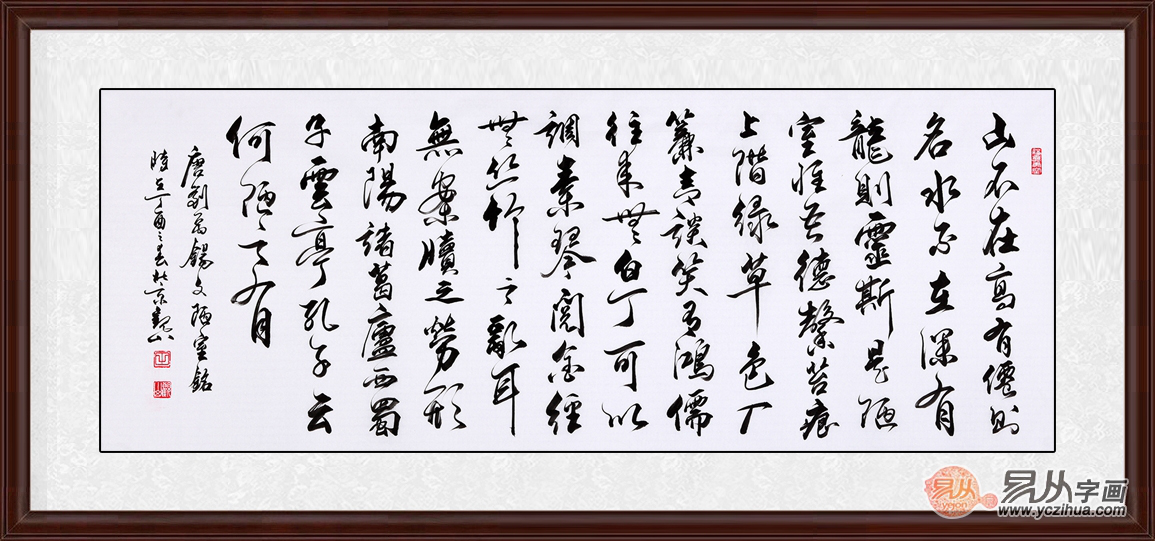 山不在高有僊則
名水不在深有
龍則靈斯是陋
室惟吾德馨苔痕
上階緑草色入
簾青談笑有鴻儒
往来無白丁可以
調素琴閲金經
無丝竹之亂耳
無案牘之勞形
南陽諸葛廬西蜀
子雲亭孔子云
何陋之有
唐劉禹錫文陋室銘
時在丁酉之春於京觀山
易从
易从字画
www.yczihua.com